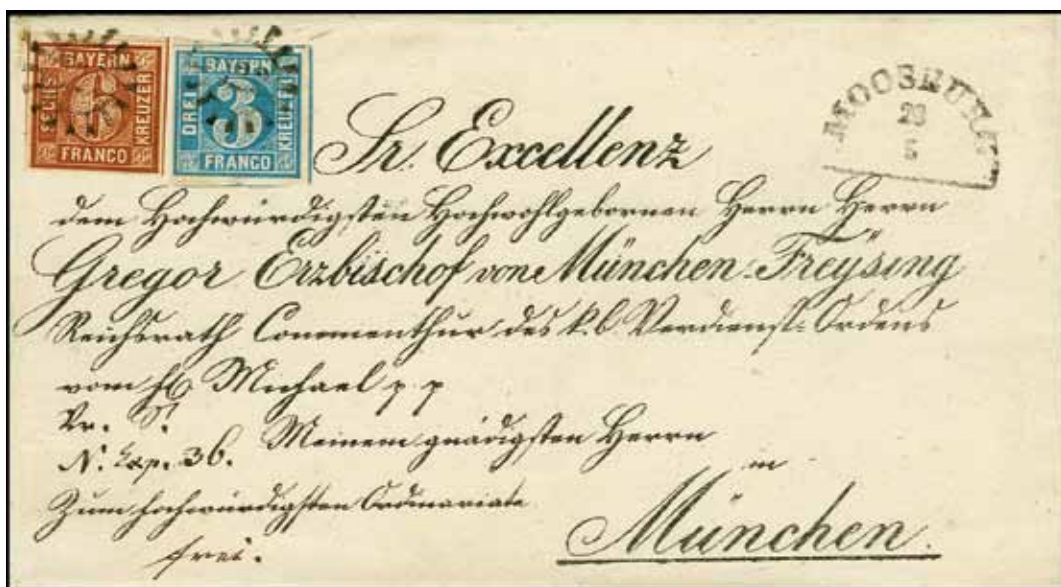 BAYERN
SECHS 6 KREUZER
FRANCO
BAYERN
DREI 3 KREUZER
FRANCO
MOOSBURG
28
5
Sr. Excellenz
dem Hochwürdigsten Hochwohlgebornen Herrn Herrn
Gregor Erzbischof von München-Freÿsing
Reichsrath Commenthur des k. b. Verdienst-Ordens
vom hl. Michael p. p
Pr. S.
N. Exp. 36. Meinem gnädigsten Herrn
in
Zum hochwürdigsten Ordinariate
frei.
München.